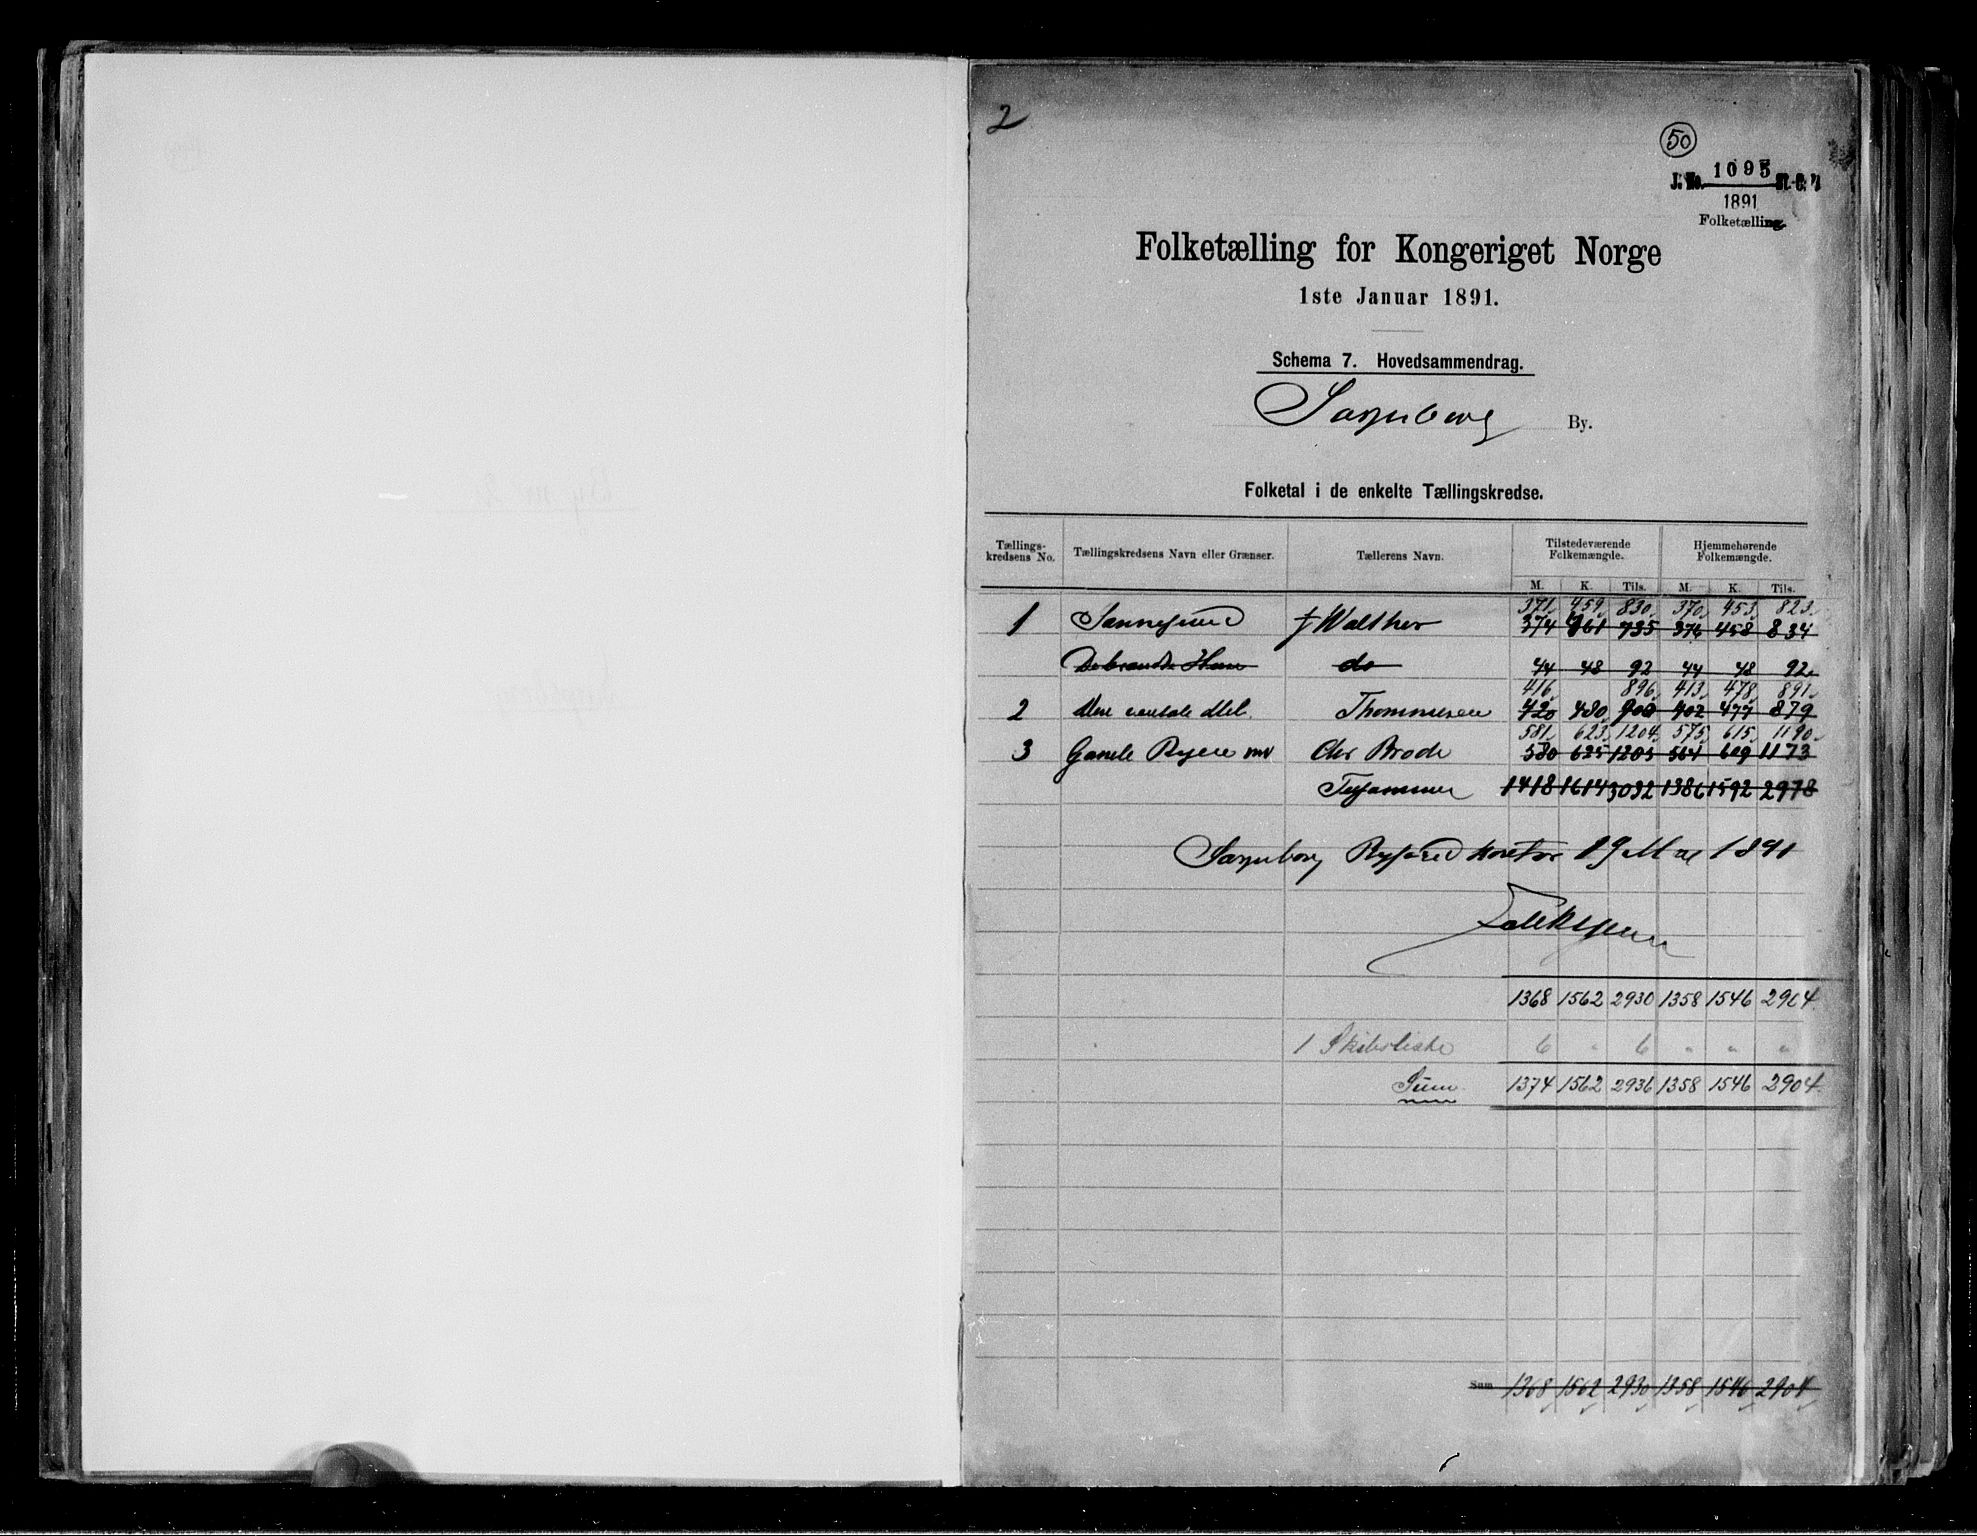 2
50
J. No. 1095 St. C. B.
1891
Folketælling
Folketælling for Kongeriget Norge
1ste Januar 1891.
Schema 7. Hovedsammendrag.
Sarpsborg By.
Folketal i de enkelte Tællingskredse.
Tællings-kredsens No. Tællingskredsens Navn eller Grænser. Tællerens Navn. Tilstedeværende Folkemængde. Hjemmehørende Folkemængde.
M. K. Tils. M. K. Tils.
371 459 830 370 453 823
1 Sannesund Walther 374 461 735 376 458 834
do 44 48 92 44 48 92
416 896 413 478 891
2 Den vestale Del Thommesen 420 480 900 402 477 879
581 623 1204 575 615 1190
3 Gamle Byen mv Chr Brode 580 625 1205 564 609 1173
Tilsammen 1418 1614 3032 1386 1592 2978
Sarpsborg Byfogedkontor 19 Mai 1891
1368 1562 2930 1358 1546 2904
1 Skibsliste 6 " 6 " " "
Sum 1374 1562 2936 1358 1546 2904
Sum 1368 1562 2930 1358 1546 2904